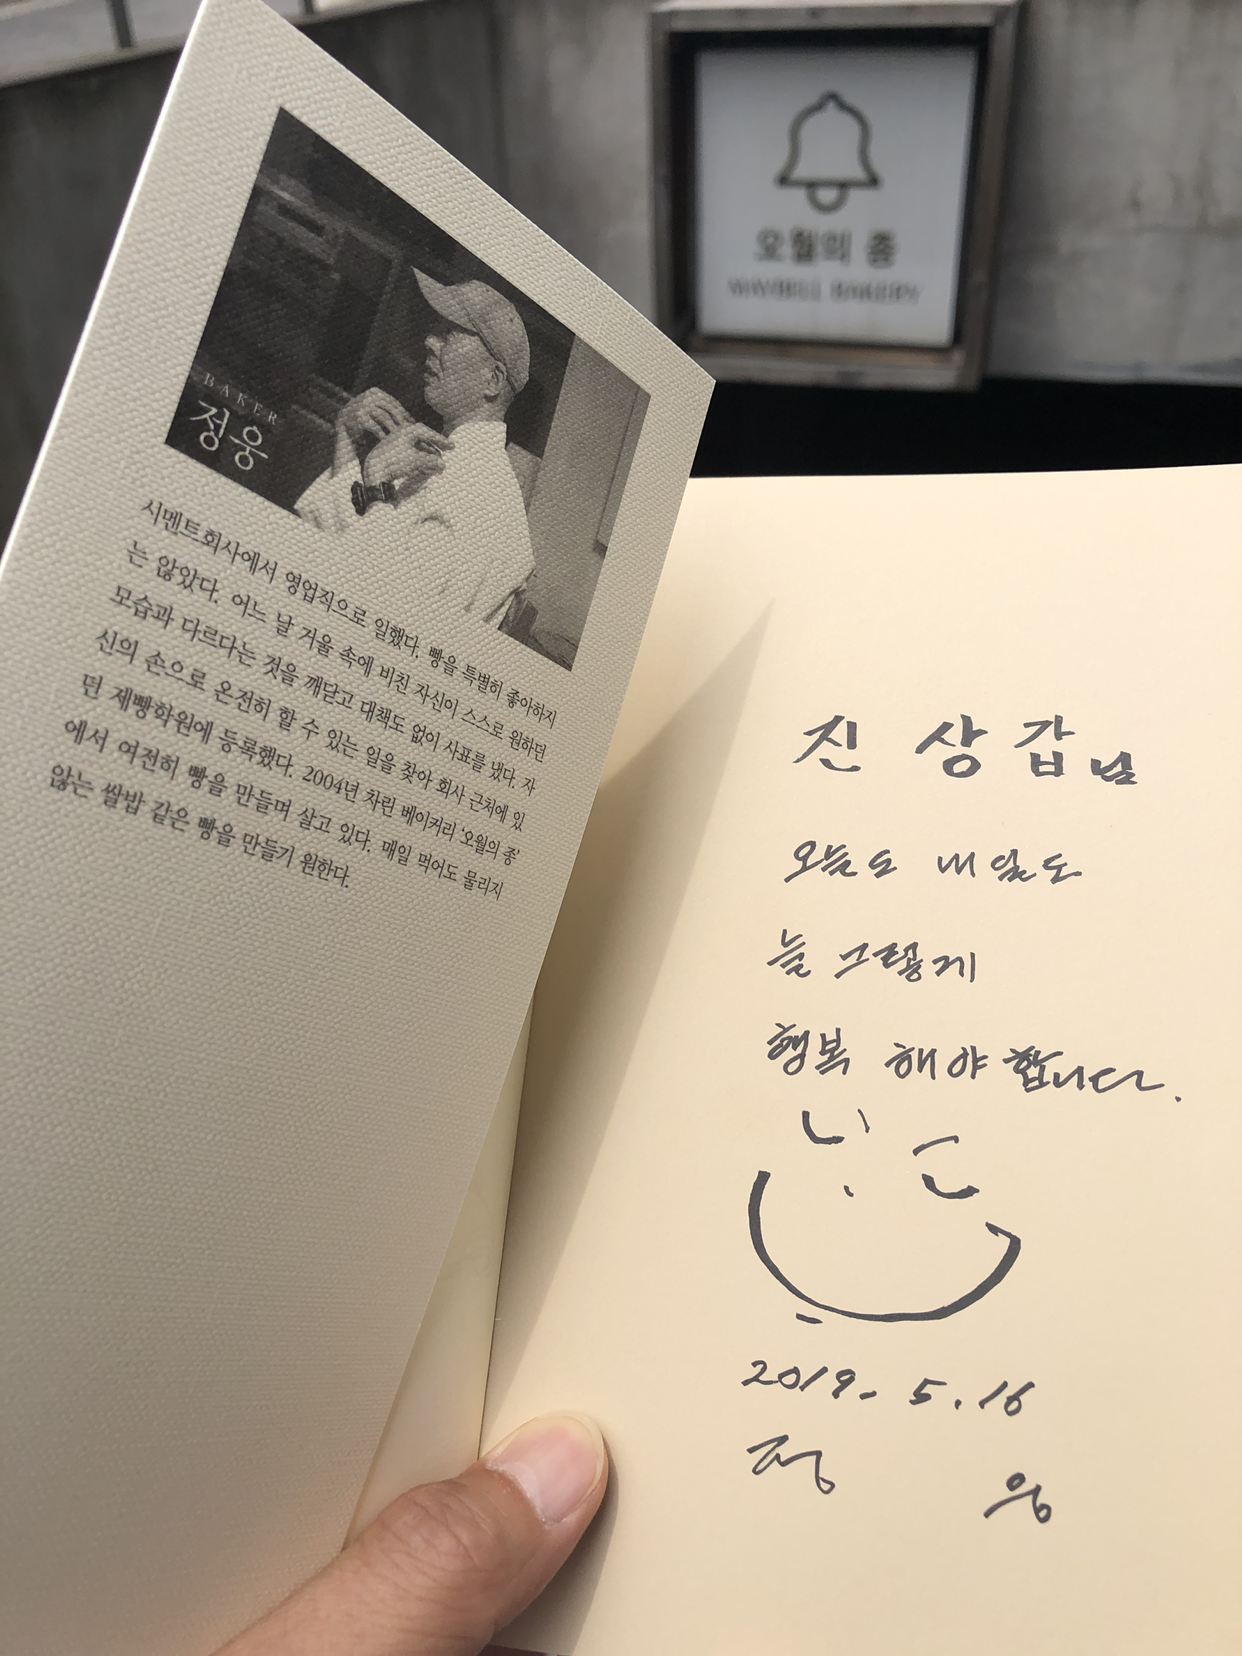 오월의 종
MAYBELL BAKERY
BAKER
정웅
시멘트회사에서 영업직으로 일했다. 빵을 특별히 좋아하지
는 않았다. 어느 날 거울 속에 비친 자신이 스스로 원하던
모습과 다르다는 것을 깨닫고 대책도 없이 사표를 냈다. 자
신의 손으로 온전히 할 수 있는 일을 찾아 회사 근처에 있
던 제빵학원에 등록했다. 2004년 차린 베이커리 ‘오월의 종’
에서 여전히 빵을 만들며 살고 있다. 매일 먹어도 물리지
않는 쌀밥 같은 빵을 만들기 원한다.
진 상 갑 님
오늘도 내일도
늘 그렇게
행복 해야 합니다.
2019. 5. 16
정 웅